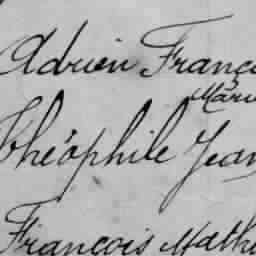 Adrien Franç
Marie
Théophile Jean
François Math